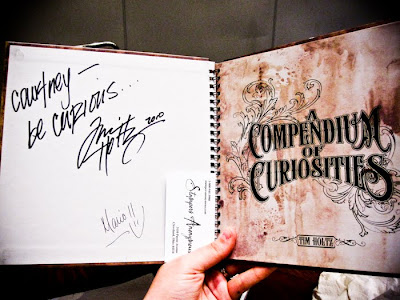 courtney —
be curious....
Tim Holtz 2010
Mario!!
Stampers Anonymous
A
COMPENDIUM
OF
CURIOSITIES
TIM HOLTZ